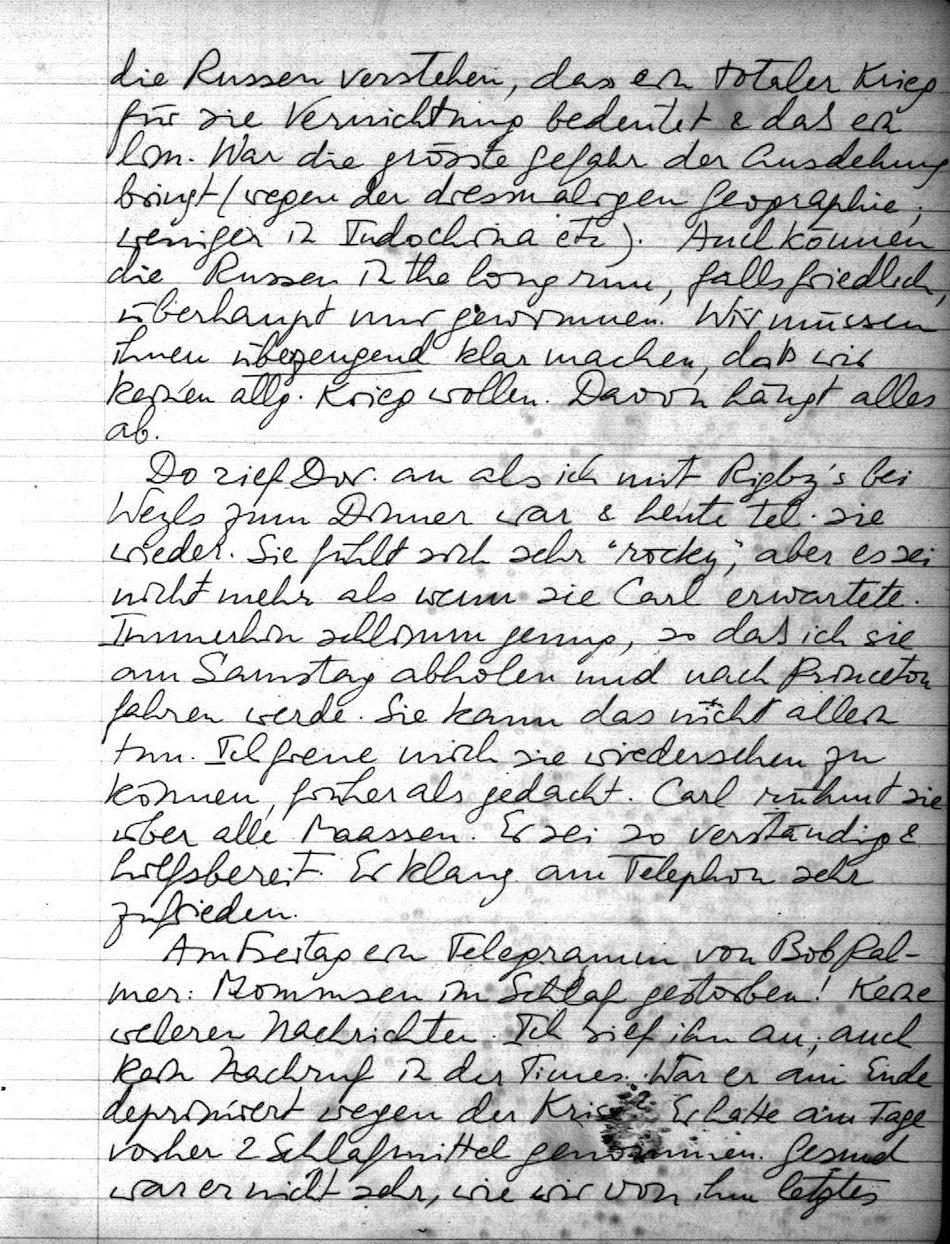 die Russen verstehen, dass ein totaler Krieg
für sie Vernichtung bedeutet & daß ein
lim. War die grösste Gefahr der Ausdehnung
bringt (wegen der diesmaligen Geographie;
weniger in Indochina etc). Auch können
die Russen in the long run, falls friedlich,
überhaupt nur gewinnen. Wir müssen
ihnen überzeugend klar machen, daß wir
keinen allg. Krieg wollen. Davon hängt alles
ab.
Do rief Dor. an als ich mit Rigby's bei
Weyls zum Dinner war & heute tel. sie
wieder. Sie fühlt sich sehr "rocky", aber es sei
nicht mehr als wenn sie Carl erwartete.
Immerhin schlimm genug, so daß ich sie
am Samstag abholen und nach Princeton
fahren werde. Sie kann das nicht allein
tun. Ich freue mich sie wiedersehen zu
können, früher als gedacht. Carl rühmt sie
über alle Maassen. Er sei so verständig &
hilfsbereit. Er klang am Telephon sehr
zufrieden.
Am Freitag ein Telegramm von Bob Pal-
mer: Mommsen im Schlaf gestorben! Keine
weiteren Nachrichten. Ich rief ihn an; auch
kein Nachruf in der Times. War er am Ende
deprimiert wegen der Krise? Er hatte am Tage
vorher 2 Schlafmittel genommen. Gesund
war er nicht sehr, wie wir von ihm letztes